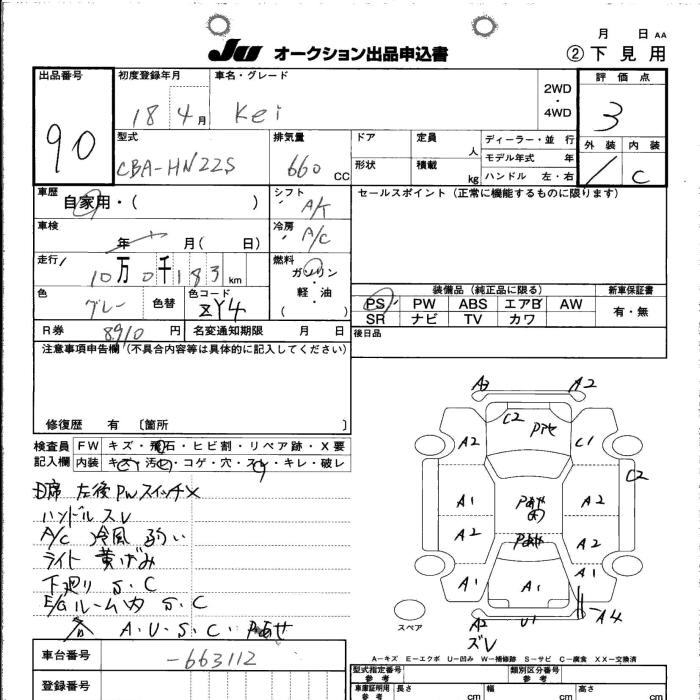 月 日 AA
JU オークション出品申込書
② 下見用
出品番号
90
初度登録年月
18 4月
車名・グレード
Kei
2WD
・
4WD
評価点
3
型式
CBA-HN22S
排気量
660 CC
ドア
定員
人
形状
積載
kg
ディーラー・並 行
モデル年式 年
ハンドル 左・右
外装 内装
C
車歴
自家用・( )
シフト
A/T
セールスポイント（正常に機能するものに限ります）
車検
年 月( 日)
冷房
A/C
走行
10万0千183km
燃料
ガソリン
・
軽 油
( )
色
グレー
色替
色コード
ZY4
装備品（純正品に限る）
PS PW ABS エアB AW
SR ナビ TV カワ
新車保証書
有・無
R券 8910 円
名変通知期限 月 日
後日品
注意事項申告欄（不具合内容等は具体的に記入してください）
修復歴 有 〔箇所 〕
検査員
記入欄
FW キズ・飛石・ヒビ割・リペア跡・X要
内装 キズ・汚れ・コゲ・穴・スレ・キレ・破レ
D席 左後PWスイッチ×
ハンドルスレ
A/C 冷風 弱い
ライト 黄ばみ
下廻り S・C
E/Gルーム内 S・C
A・U・S・C・Pあせ
車台番号
-663112
登録番号
A3 A2
C2 Pアセ
A2 C1
C2
A1 A2
A2 Pあせ A2
A1 A1 A1
A2 U1 A4
ズレ
スペア
A-キズ E-エクボ U-凹み W-補修跡 S-サビ C-腐食 XX-交換済
型式指定番号
参考
類別区分番号
参考
車庫証明用
参考
長さ cm
幅 cm
高さ cm